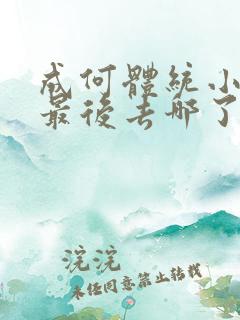 成何體統小
最後去哪了
浣浣
未任同意禁止转载